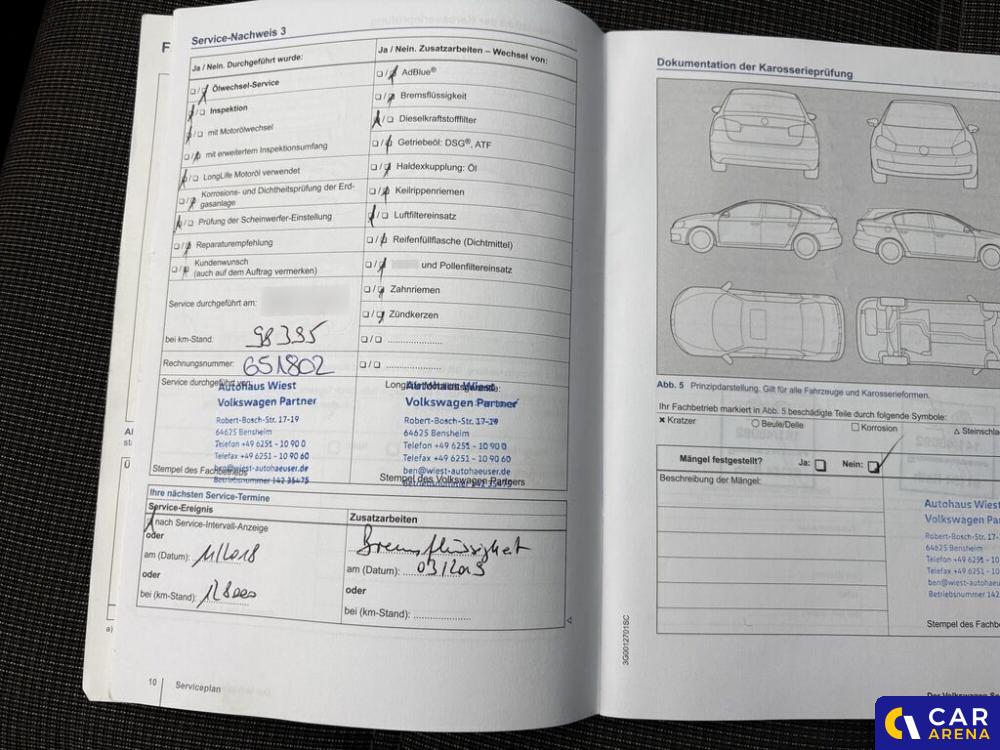 Service-Nachweis 3
Ja / Nein. Durchgeführt wurde:
Ölwechsel-Service
Inspektion
mit Motorölwechsel
mit erweitertem Inspektionsumfang
LongLife Motoröl verwendet
Korrosions- und Dichtheitsprüfung der Erd-
gasanlage
Prüfung der Scheinwerfer-Einstellung
Reparaturempfehlung
Kundenwunsch
(auch auf dem Auftrag vermerken)
Service durchgeführt am:
bei km-Stand: 98395
Rechnungsnummer: 651802
Service durchgeführt von:
Autohaus Wiest
Volkswagen Partner
Robert-Bosch-Str. 17-19
64625 Bensheim
Telefon +49 6251 - 10 90 0
Telefax +49 6251 - 10 90 60
ben@wiest-autohaeuser.de
Betriebsnummer 142 35475
Stempel des Fachbetriebs
Ja / Nein. Zusatzarbeiten – Wechsel von:
AdBlue®
Bremsflüssigkeit
Dieselkraftstofffilter
Getriebeöl: DSG®, ATF
Haldexkupplung: Öl
Keilrippenriemen
Luftfiltereinsatz
Reifenfüllflasche (Dichtmittel)
und Pollenfiltereinsatz
Zahnriemen
Zündkerzen
Autohaus Wiest
Volkswagen Partner
Robert-Bosch-Str. 17-19
64625 Bensheim
Telefon +49 6251 - 10 90 0
Telefax +49 6251 - 10 90 60
ben@wiest-autohaeuser.de
Betriebsnummer 142 35475
Stempel des Volkswagen Partners
Ihre nächsten Service-Termine
Service-Ereignis
nach Service-Intervall-Anzeige
oder
am (Datum): 11/2018
oder
bei (km-Stand): 128000
Zusatzarbeiten
Bremsflüssigkeit
am (Datum): 03/2019
oder
bei (km-Stand):
10 Serviceplan
Dokumentation der Karosserieprüfung
Abb. 5 Prinzipdarstellung. Gilt für alle Fahrzeuge und Karosserieformen.
Ihr Fachbetrieb markiert in Abb. 5 beschädigte Teile durch folgende Symbole:
Kratzer Beule/Delle Korrosion Steinschla
Mängel festgestellt? Ja: Nein:
Beschreibung der Mängel:
Autohaus Wiest
Volkswagen Pa
Robert-Bosch-Str. 17-1
64625 Bensheim
Telefon +49 6251 - 10
Telefax +49 6251 - 10
ben@wiest-autohaeu
Betriebsnummer 142
Stempel des Fachbe
3G0012701SC
CAR
ARENA